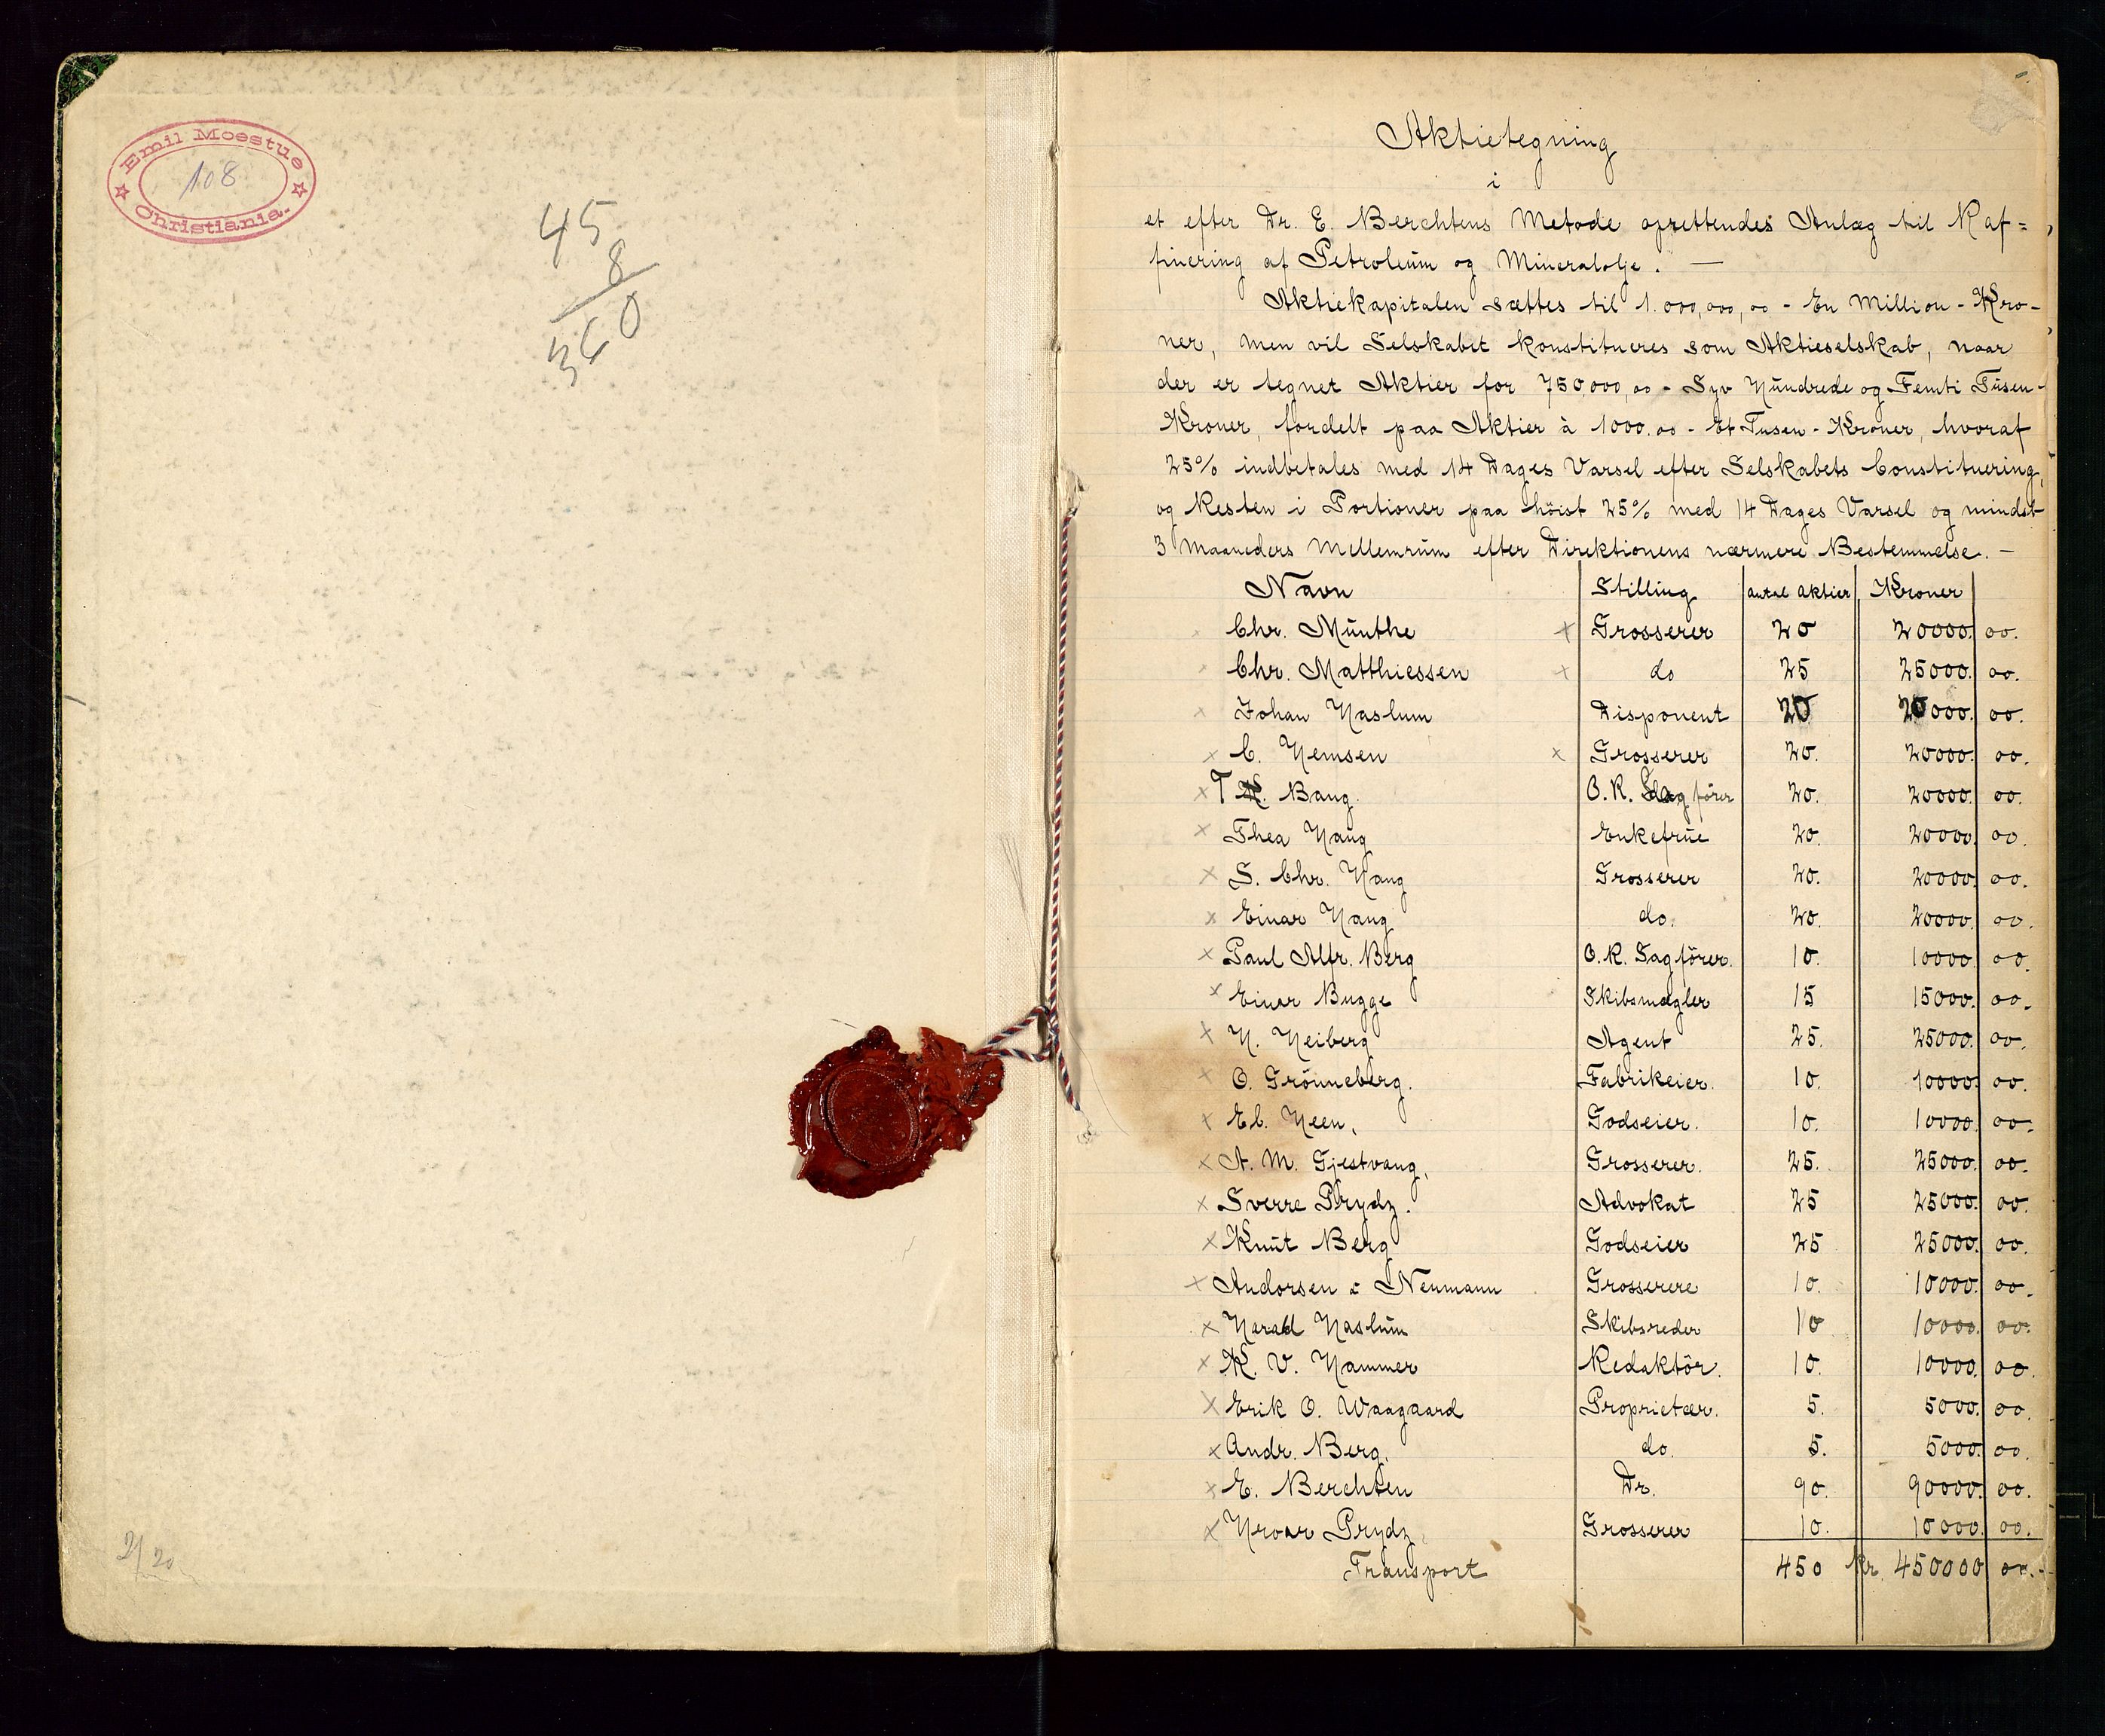 Emil Moestue
108
Christiania.
45
8
360
2/20
Aktietegning
i
et efter Dr. E. Berchtens Metode oprettendes Anlæg til Raf=
finering af Petroleum og Mineralolje. —
Aktiekapitalen sættes til 1.000,000,00 - En Million - Kro-
ner, men vil Selskabet konstitueres som Aktieselskab, naar
der er tegnet Aktier for 750,000,00 - Syv Hundrede og Femti Tusen-
Kroner, fordelt paa Aktier à 1000.00 - Et Tusen - Kroner, hvoraf
25% indbetales med 14 Dages Varsel efter Selskabets Constituering,
og Resten i Portioner paa höist 25% med 14 Dages Varsel og mindst
3 Maaneders Mellemrum efter Direktionens nærmere Bestemmelse. —
Navn Stilling Antal Aktier Kroner
Chr. Munthe x Grosserer 20 20000. 00.
Chr. Matthiessen x do 25 25000. 00.
x Johan Haslum Disponent 20 20000. 00.
x C. Hemsen x Grosserer 20. 20000. 00.
x T. Bang O.R. Sagförer 20. 20000. 00.
x Thea Haug Enkefrue 20. 20000. 00.
x S. Chr. Haug Grosserer 20. 20000. 00.
x Einar Haug do. 20. 20000. 00.
x Paul Alfr. Berg O.R. Sagförer. 10. 10000. 00.
x Einar Bugge Skibsmægler 15 15000. 00.
x H. Heiberg Agent 25. 25000. 00.
x O. Grönneberg. Fabrikeier. 10. 10000. 00.
x Eb. Heen, Godseier. 10. 10000. 00.
x A. M. Gjestvang, Grosserer. 25. 25000. 00.
x Sverre Prydz. Advokat 25 25000. 00.
x Knut Berg Godseier 25 25000. 00.
x Andorsen & Neumann Grosserere 10. 10000. 00.
x Harald Haslum Skibsreder 10 10000. 00.
x K. V. Hammer Redaktör. 10. 10000. 00.
x Erik O. Waagaard Proprietær. 5. 5000. 00.
x Andr. Berg. do. 5. 5000. 00.
x E. Berchten Dr. 90. 90000. 00.
x Hroar Prydz Grosserer 10. 10000. 00.
Transport 450 Kr. 450000 00.